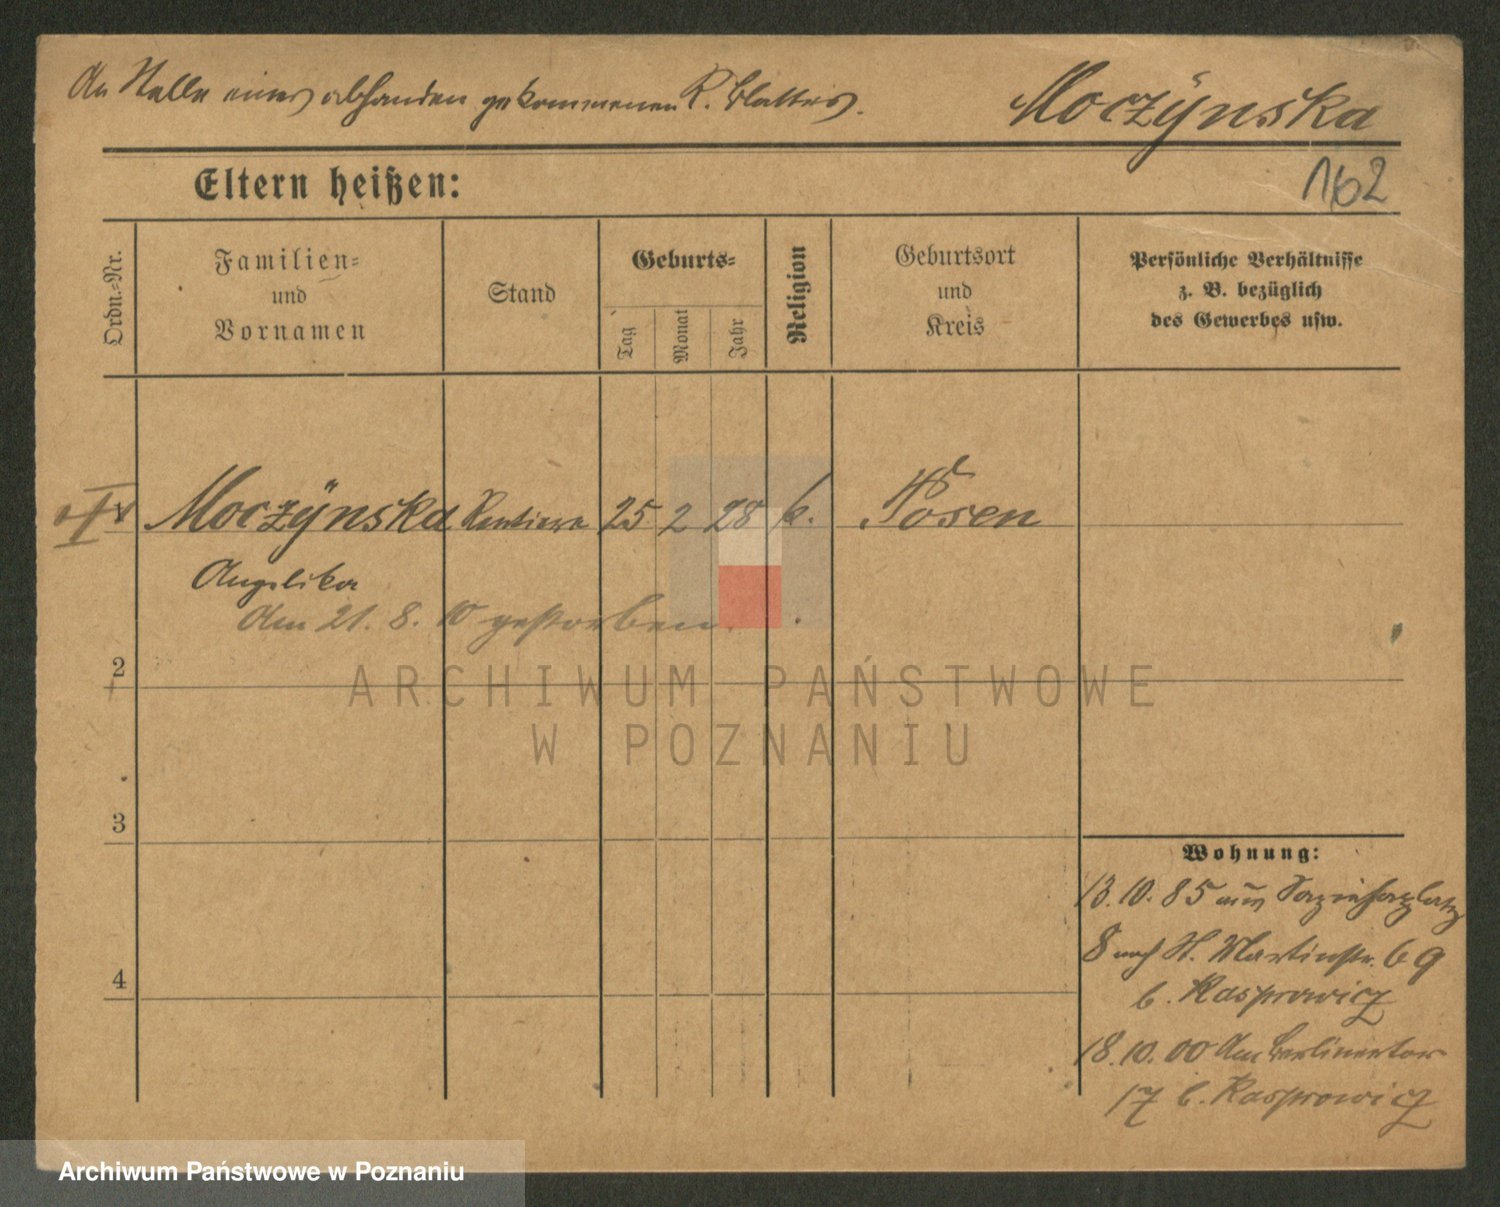 An Stelle eines abhanden gekommenen R. Blattes.
Moczÿnska
162
Eltern heißen:
Ordn.-Nr.
Familien-
und
Vornamen
Stand
Geburts-
Tag
Monat
Jahr
Religion
Geburtsort
und
Kreis
Persönliche Verhältnisse
z. B. bezüglich
des Gewerbes usw.
Moczÿnska Rentiere 25 2 28 k. Posen
Angelika
Am 21. 8. 10 gestorben.
2
ARCHIWUM PAŃSTWOWE
W POZNANIU
3
4
Wohnung:
13. 10. 85 aus Sapiehaplatz
8 nach St. Martinstr. 69
b. Kasprowicz
18. 10. 00 Am Berlinertor
17 b. Kasprowicz
Archiwum Państwowe w Poznaniu